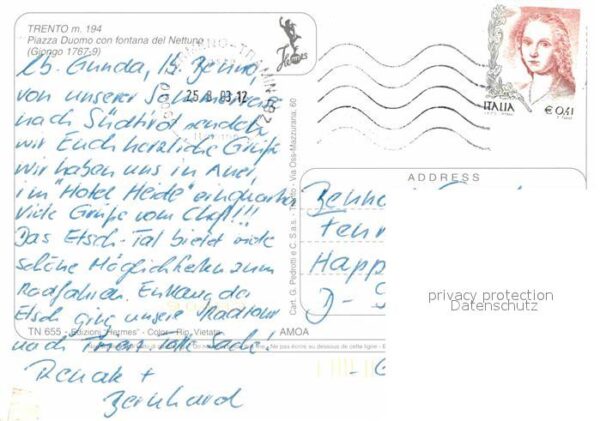 TRENTO m. 194
Piazza Duomo con fontana del Nettuno
(Giongo 1767-9)
Lb. Gunda, lb. Benno,
von unserer
nach Südtirol senden
wir Euch herzliche Grüße
wir haben uns in Auer
im "Hotel Heide" einquartiert
Viele Grüße vom Chef!!!
Das Etsch-Tal bietet viele
schöne Möglichkeiten zum
Radfahren. Entlang der
Etsch ging unsere Radtour
nach Trient. Tolle Sache!
Renate +
Bernhard
TN 655 - Edizioni "Hermes" - Color - Rip. Vietata
AMOA
Hermes
25.8.03.12
Cart. G. Pedrotti e C. S.a.s. - Trento - Via Oss-Mazzurana, 60
ITALIA
€ 0,41
ADDRESS
Happ
D-
privacy protection
Datenschutz
Ne pas écrire au dessous de cette ligne